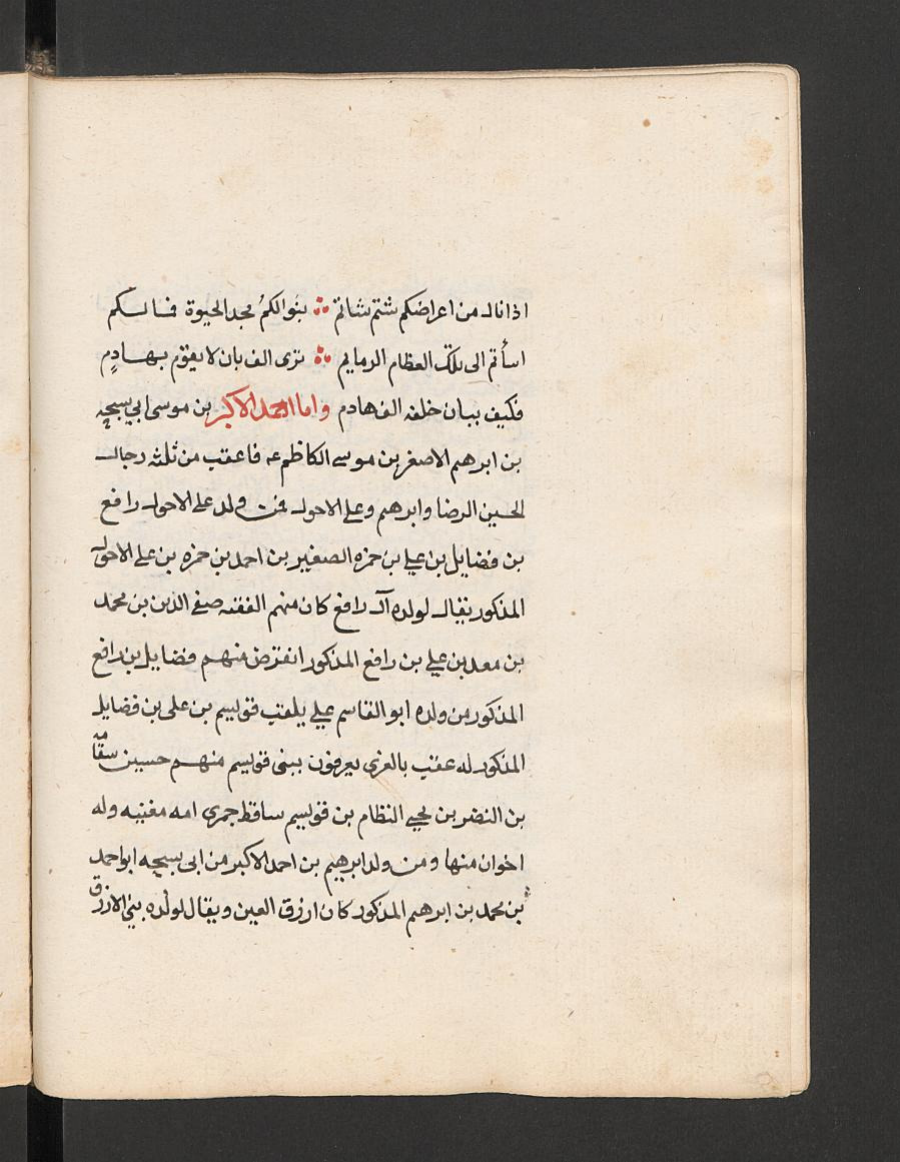 اذا نال من اعراضكم شتم شاتم ∴ بنوا لكم مجد الحيوة فما لكم
اسأتم الى تلك العظام الرمايم ∴ ترى الف بان لا يقوم بهادم
فكيف ببان خلفه الف هادم واما احمد الاكبر بن موسى ابي سبحه
بن ابرهيم الاصغر بن موسى الكاظم عه فاعقب من ثلثه رجال
الحسين الرضا وابرهيم وعلي الاحول فمن ولد علي الاحول رافع
بن فضايل بن علي بن حمزه الصغير بن احمد بن حمزه بن علي الاحول
المذكور يقال لولده آل رافع كان منهم الفقيه صفي الدين بن محمد
بن معد بن علي بن رافع المذكور انقرض منهم فضايل بن رافع
المذكور من ولده ابو القاسم علي يلقب قويسم بن على بن فضايل
المذكور له عقب بالغرى يعرفون ببنى قويسم منهم حسين سقامه
بن النضر بن يحيى النظام بن قويسم ساقط جمرى امه مغنيه وله
اخوان منها ومن ولد ابرهيم بن احمد الاكبر من ابى سبحه ابو احمد
بن محمد بن ابرهيم المذكور كان ازرق العين ويقال لولده بني الازرق